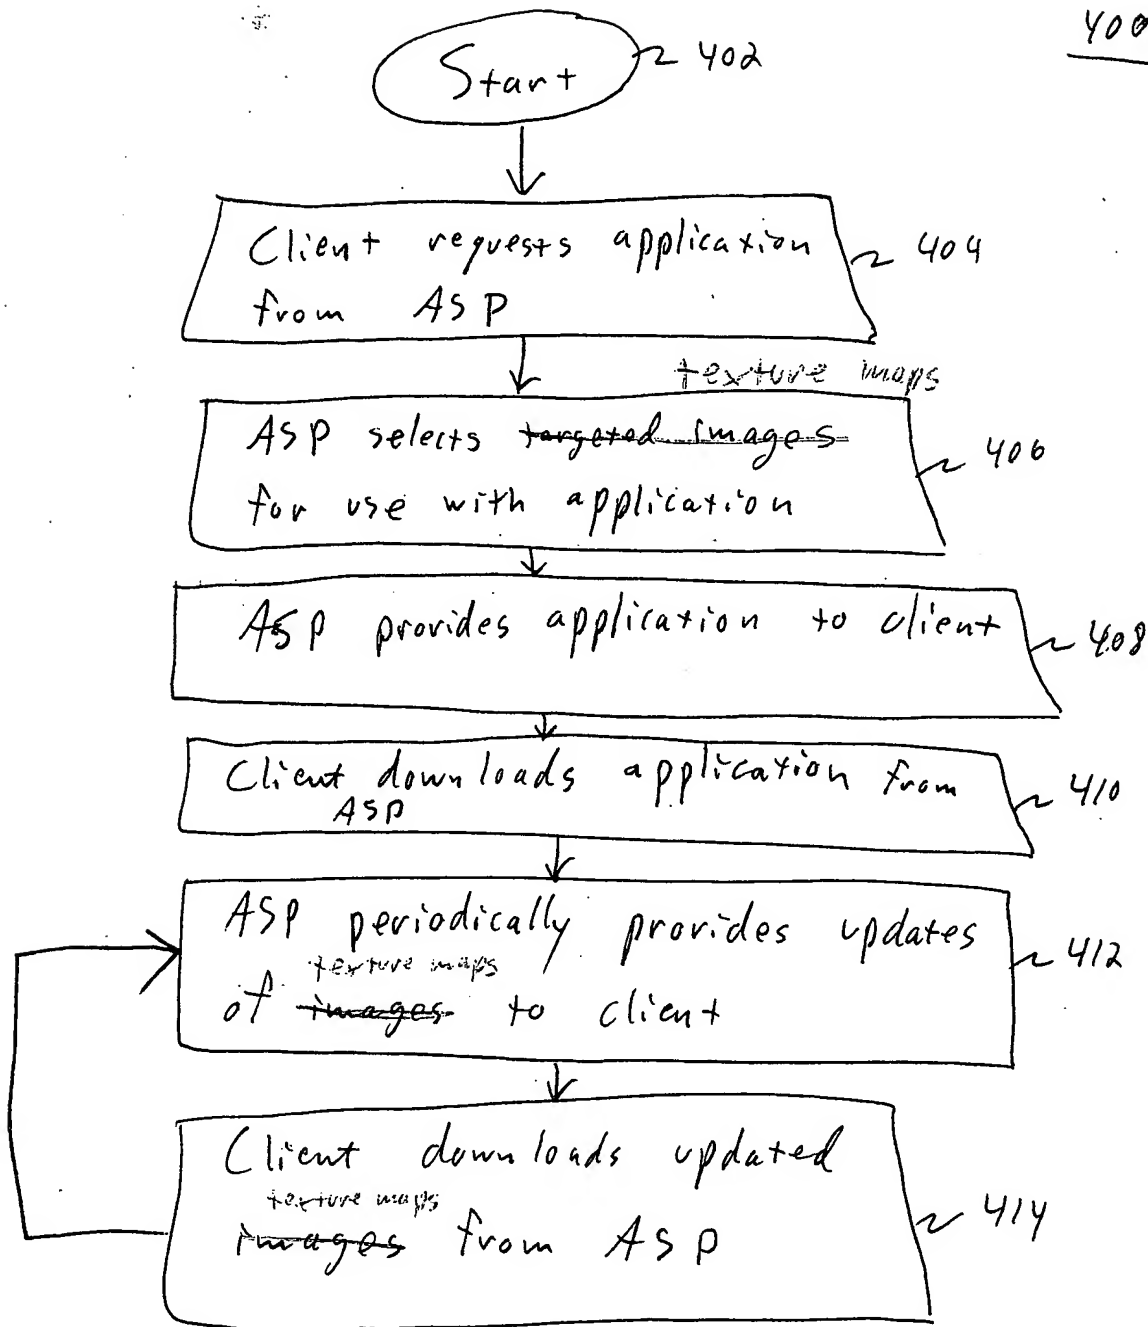 400
Start 402
Client requests application 404
from ASP
texture maps
ASP selects targeted images 406
for use with application
ASP provides application to client 408
Client downloads application from 410
ASP
ASP periodically provides updates 412
texture maps
of images to client
Client downloads updated
texture maps
images from ASP 414